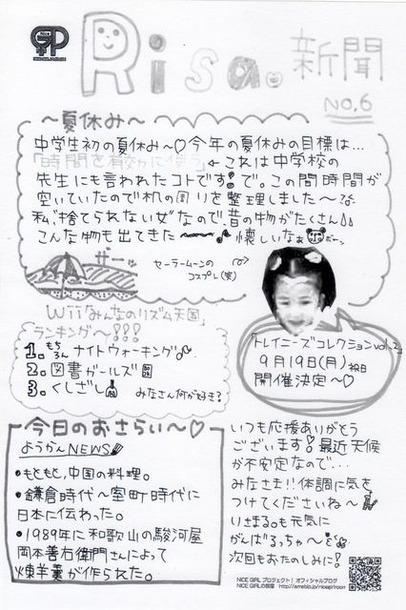 Risa。新聞
NO.6
NICE GIRL PROJECT!
～夏休み～
中学生初の夏休み～♡今年の夏休みの目標は…
「時間を有効に使う」←これは中学校の
先生にも言われたコトです!で。この間時間が
空いていたので机の周りを整理しました～?
私、"捨てられない女"なので、昔の物がたくさん
こんな物も出てきた～～♪懐しいなぁ ボーン
ザーッ
セーラームーンの
コスプレ(笑)
Wii「みんなのリズム天国」
ランキング～!!!
1.もちろんナイトウォーキング
2.図書ガールズ
3.くしざし
みなさん何が好き?
「トレイニーズコレクションvol.2」
9月19日(月)祝日
開催決定～♡
今日のおさらい～♡
ようかんNEWS
•もともと、中国の料理。
•鎌倉時代～室町時代に
日本に伝わった。
•1989年に和歌山の駿河屋
岡本善右衛門さんによって
煉羊羹が作られた。
いつも応援ありがとう
ございます!最近天候
が不安定なので…
みなさま!!体調に気を
つけてくださいね～
りさまるも元気に
がんばるっちゃ～
次回もおたのしみに!
NICE GIRL プロジェクト! オフィシャルブログ
NICE GIRLの部屋 http://ameblo.jp/nicegirlroom